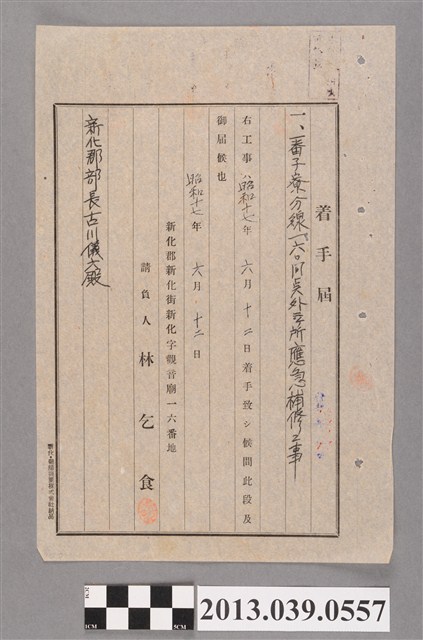 着手届
一、番子寮分線一六〇间点外 所應急補修工事
右工事ハ昭和十七年六月十二日着手致シ候間此段及
御届候也
昭和十七年六月十二日
新化郡新化街新化字觀音廟一六番地
請負人 林乞食
新化郡部長古川儀六殿
1CM
2CM
5CM
2013.039.0557